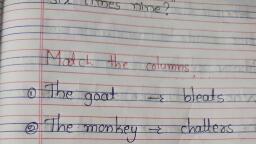 six times nine?
Match the columns.
① The goat → bleats
② The monkey → chatters